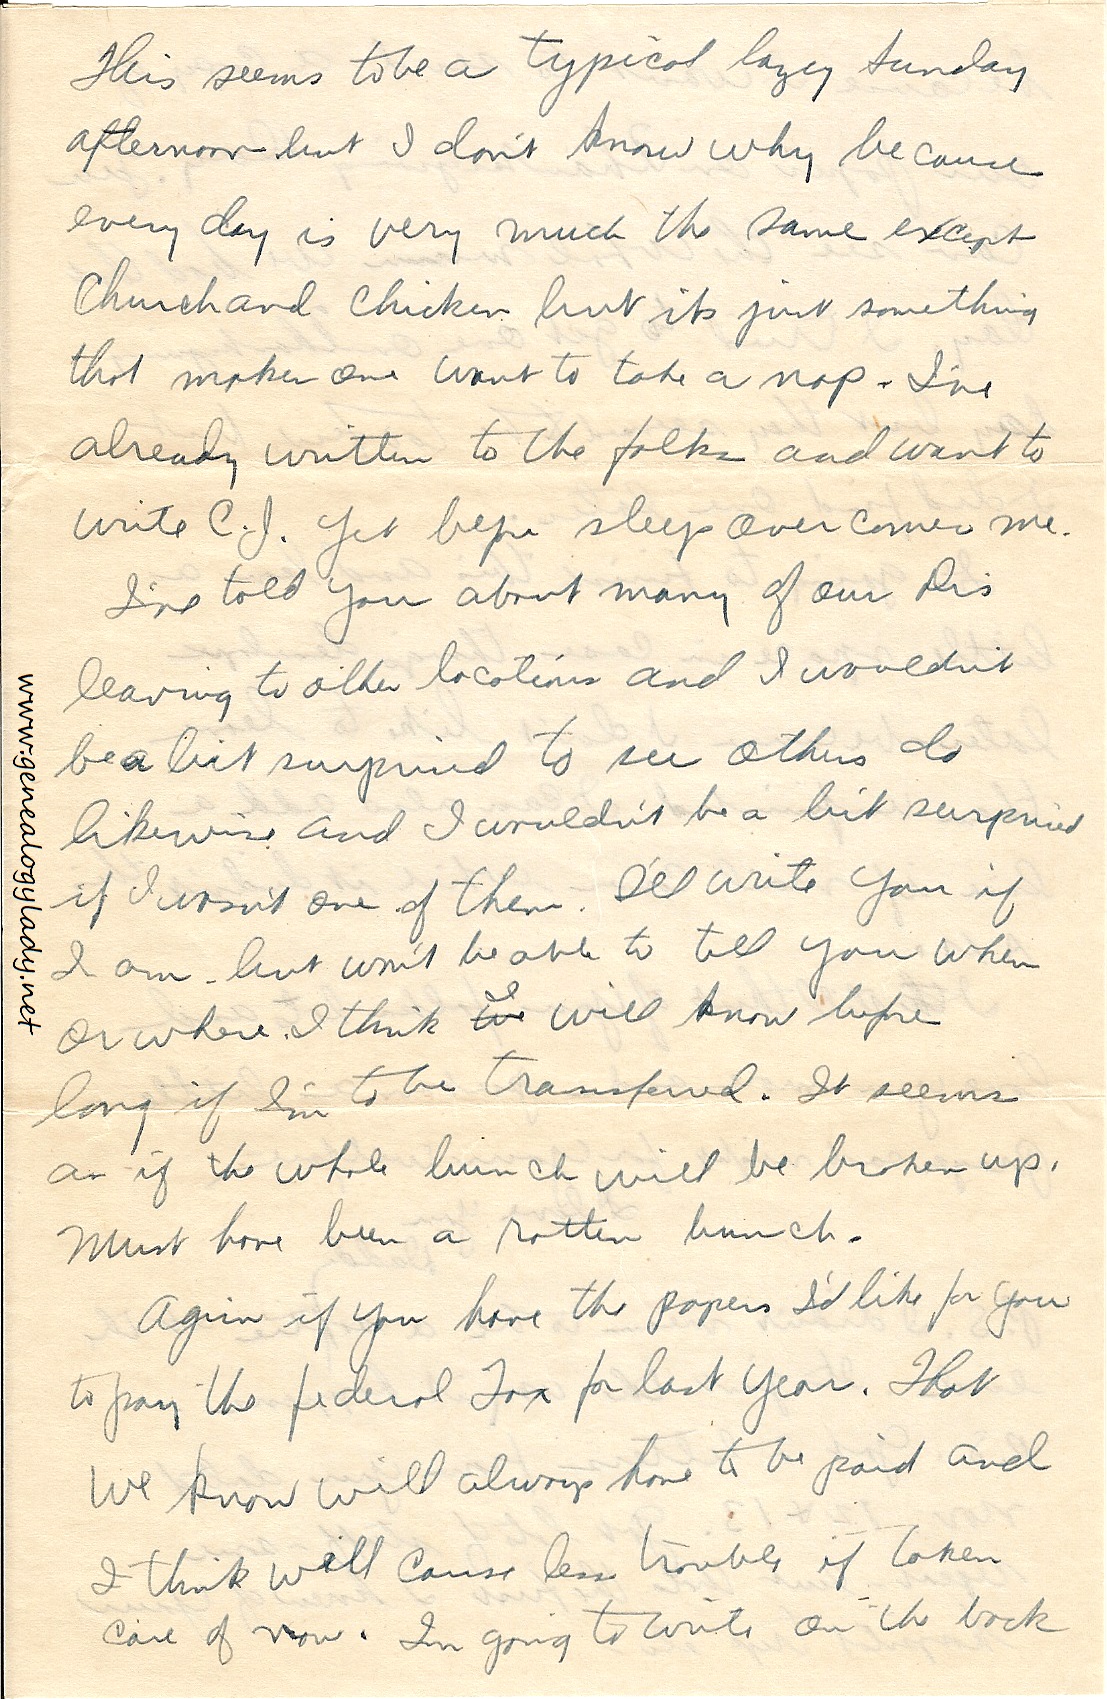 This seems to be a typical lazy Sunday
afternoon but I don't know why because
every day is very much the same except
Church and chicken but its just something
that makes one want to take a nap. I've
already written to the folks and want to
write C.J. yet before sleep overcomes me.
I've told you about many of our Drs
leaving to other locations and I wouldn't
be a bit surprised to see others do
likewise and I wouldn't be a bit surprised
if I wasn't one of them. I'll write you if
I am but won't be able to tell you when
or where. I think I will know before
long if I'm to be transferred. It seems
as if the whole bunch will be broken up.
Must have been a rotten bunch.
Again if you have the papers I'd like for you
to pay the federal Tax for last year. That
we know will always have to be paid and
I think will cause less trouble if taken
care of now. I'm going to write on the back
www.genealogylady.net